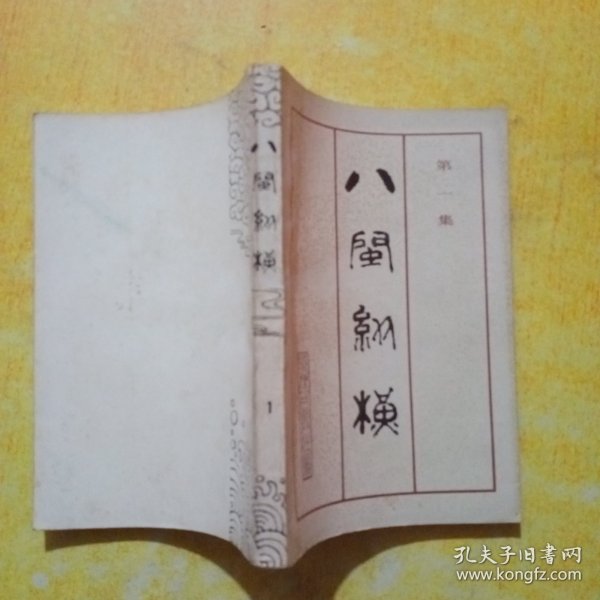 第一集
八閩纵橫
八閩纵橫
1
孔夫子旧书网
www.kongfz.com